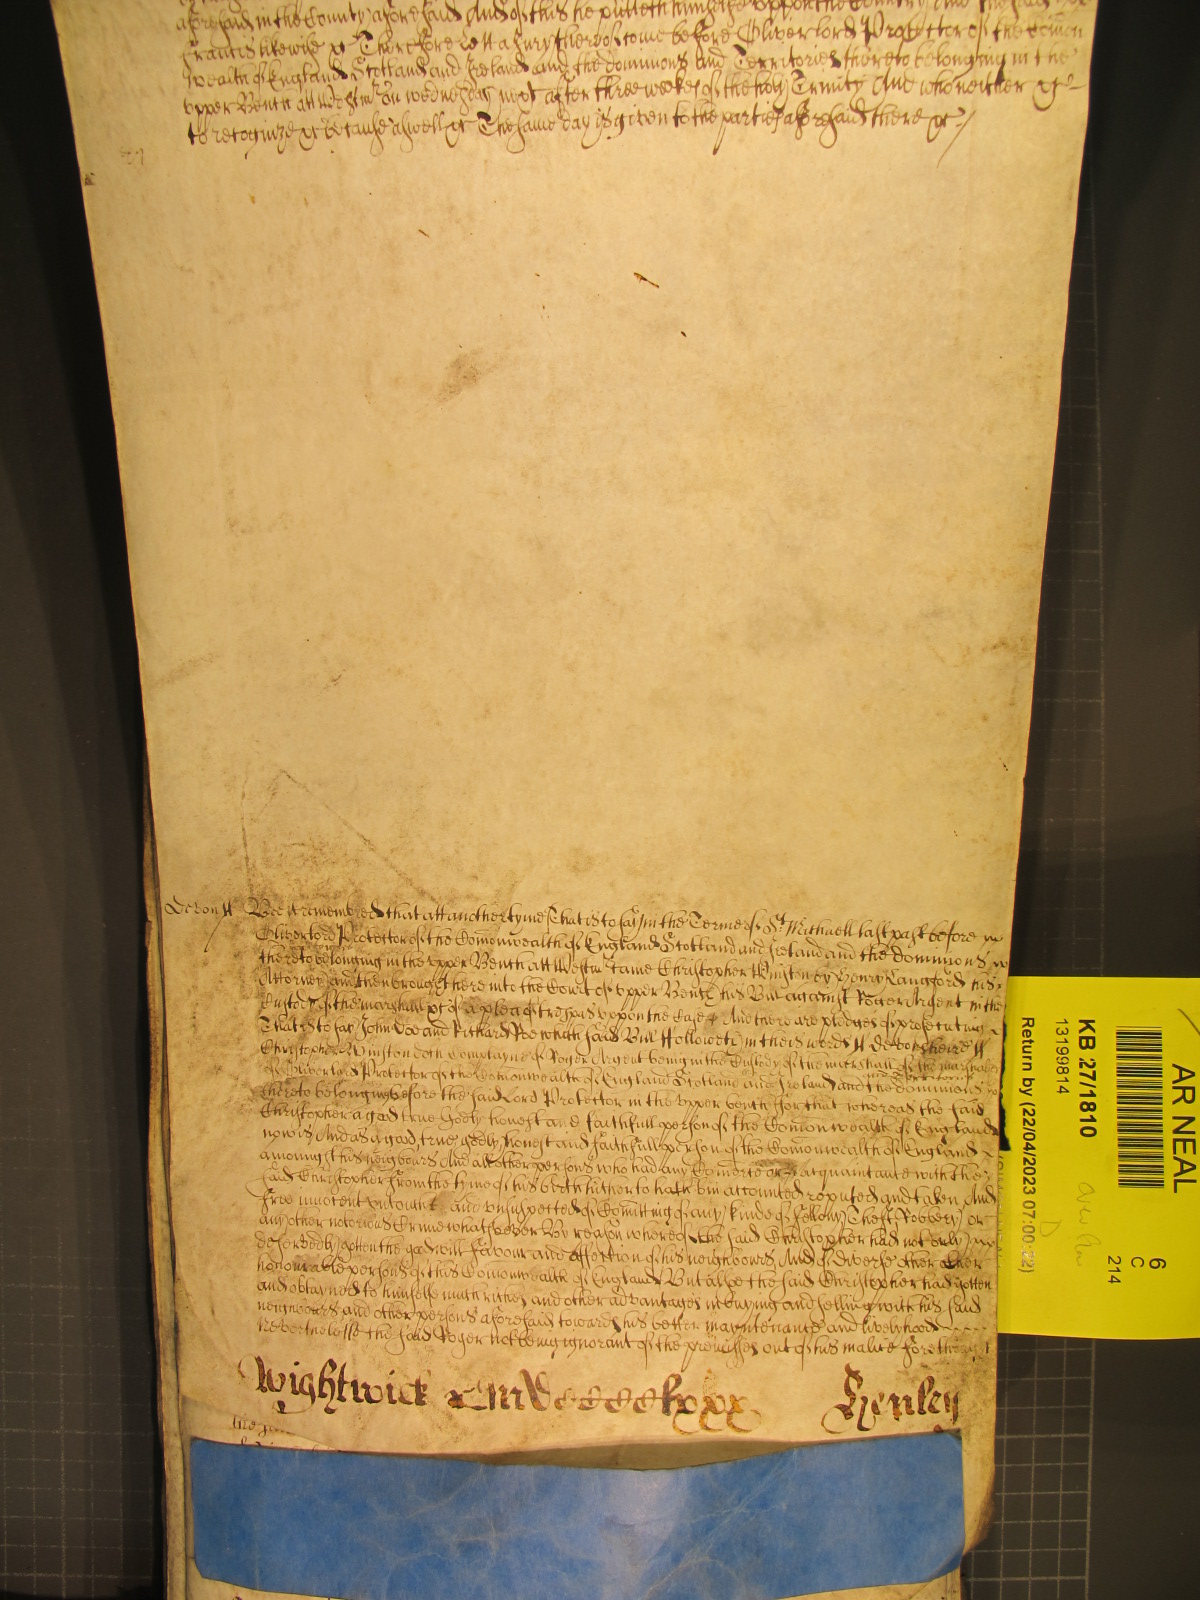 aforesaid in the County aforesaid And of this he putteth himselfe uppon the Country And the said
Francis likewise &c Therefore lett a Jury thereof come before Oliver lord Protector of the comon
wealth of England Scotland and Ireland and the dominions and Territories thereto belonging in the
upper Bench att Westmr on wednesday next after three weekes of the holy Trinity And who neither &c
to recognize &c because aswell &c The same day is given to the parties aforesaid there &c
Devon ss Bee it remembred that att another tyme That is to say in the Terme of St Michaell last past before
Oliver lord Protector of the Comonwealth of England Scotland and Ireland and the dominions
thereto belonging in the upper Bench att Westmr came Christopher Winston by Henry Langford his
Attorney and then brought here into the Court of upper Bench his Bill against Roger Argent in the
Custody of the marshall &c of a plea of trespas uppon the Case And there are pledges of prosecuting
That is to say John Doe and Richard Roe which said Bill followeth in theis words ss Devonsheire ss
Christopher Winston doth Complayne of Roger Argent being in the Custody of the marshall of the marshalsea
of Oliver lord Protector of the Comonwealth of England Scotland and Ireland and the dominions
thereto belonging before the said Lord Protector in the upper bench For that whereas the said
Christopher a good true godly honest and faithfull person of the Comonwealth of England
now is And as a good true godly honest and faithfull person of the Comonwealth of England
amongst his neighbours And all other persons who had any Comerce or acquaintance with the
said Christopher from the tyme of his birth hitherto hath bin accounted reputed and taken And
free innocent untought and unsuspected of Comitting of any kinde of fellony Theft Robbery or
any other notorious Crime whatsoever By reason whereof the said Christopher had not only
deservedly gotten the good will favour and affection of his neighbours And of diverse other
honourable persons of this Comonwealth of England But alsoe the said Christopher had gotten
and obtayned to himselfe much riches and other advantages in buying and selling with his said
neighbours and other persons aforesaid towards his better maintenance and livelyhood
Neverthelesse the said Roger not being ignorant of the premisses out of his malice forethought
Wightwick &c MDccccclxxx Henley
AR NEAL
6
C
214
KB 27/1810
13199814
Return by (22/04/2023 07:00:22)